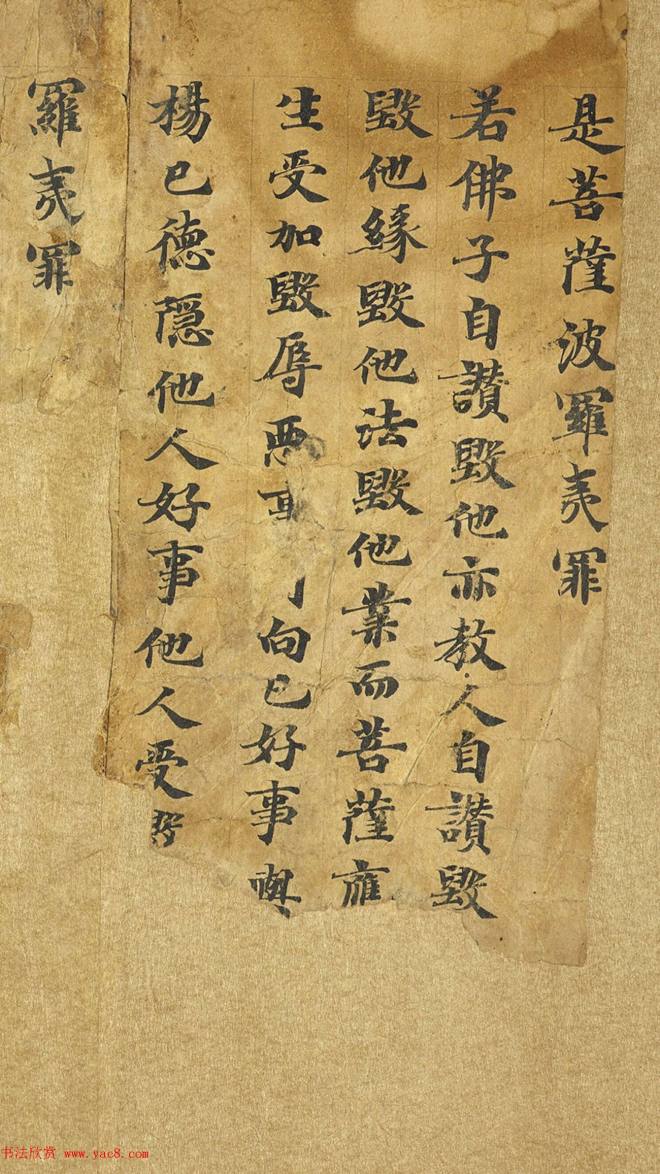 是菩薩波羅夷罪
若佛子自讚毀他亦教人自讚毀
毀他緣毀他法毀他業而菩薩
生受加毀辱惡向己好事
楊己德隱他人好事他人受
羅夷罪
书法欣赏 www.yac8.com